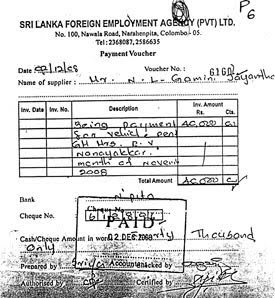 P6
SRI LANKA FOREIGN EMPLOYMENT AGENCY (PVT) LTD.
No. 100, Nawala Road, Narahenpita, Colombo - 05.
Tel : 2368087, 2586635
Payment Voucher
Date 02/12/08 Voucher No : 6160
Name of supplier : Mr. N. L. Gamini Jayantha
Inv. Date Inv. No. Description Inv. Amount
Rs. Cts.
Being payment 40,000
for vehicle rent
Mrs. R. V
Nanayakkar
month of Novem
2008
Total Amount 40,000
Bank
Cheque No.
PAID
02 DEC 2008
Cash/Cheque Amount in word Thousand
only
Prepared by Accountant Checked by
Authorised by Certified by